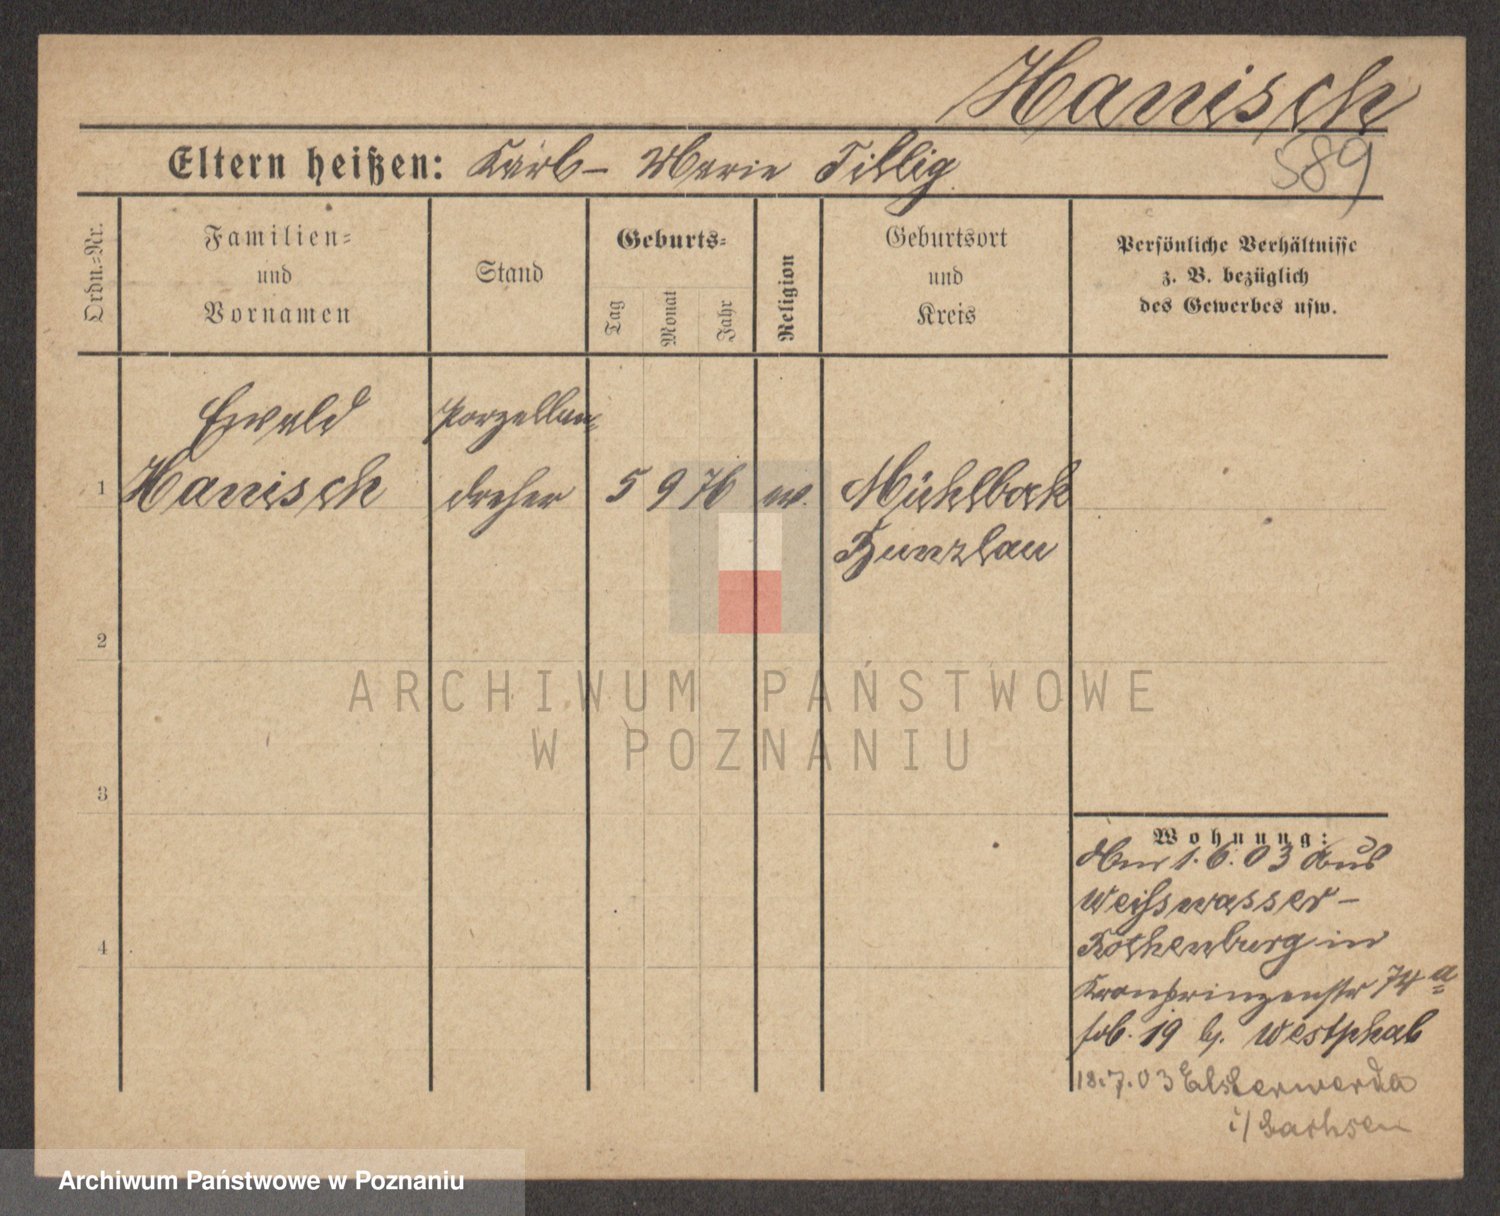 Hanisch
589
Eltern heißen: Karl – Marie Tillig
Ordn.-Nr.
Familien-
und
Vornamen
Stand
Geburts-
Tag
Monat
Jahr
Religion
Geburtsort
und
Kreis
Persönliche Verhältnisse
z. B. bezüglich
des Gewerbes usw.
Ewald
Porzellan-
1 Hanisch dreher 5 9 76 ev. Mühlbock
Bunzlau
2
ARCHIWUM PAŃSTWOWE
W POZNANIU
3
Wohnung:
Am 1.6.03 aus
Weißwasser –
Rothenburg in
Kronprinzenstr 74 a
19 b. Westphal
18.7.03 Elsterwerda
i/ Sachsen
4
Archiwum Państwowe w Poznaniu